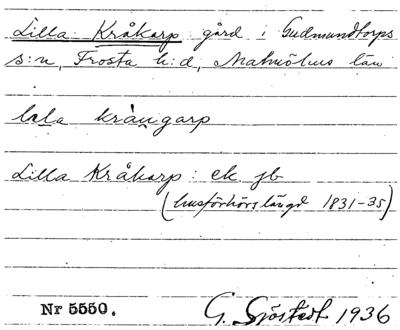 Lilla Kråkarp gård i Gudmundtorps
s:n, Frosta h:d, Malmöhus län
lɩla kràŋgarp
Lilla Kråkarp: ek jb
(husförhörslängd 1831-35)
Nr 5550. G. Sjöstedt 1936